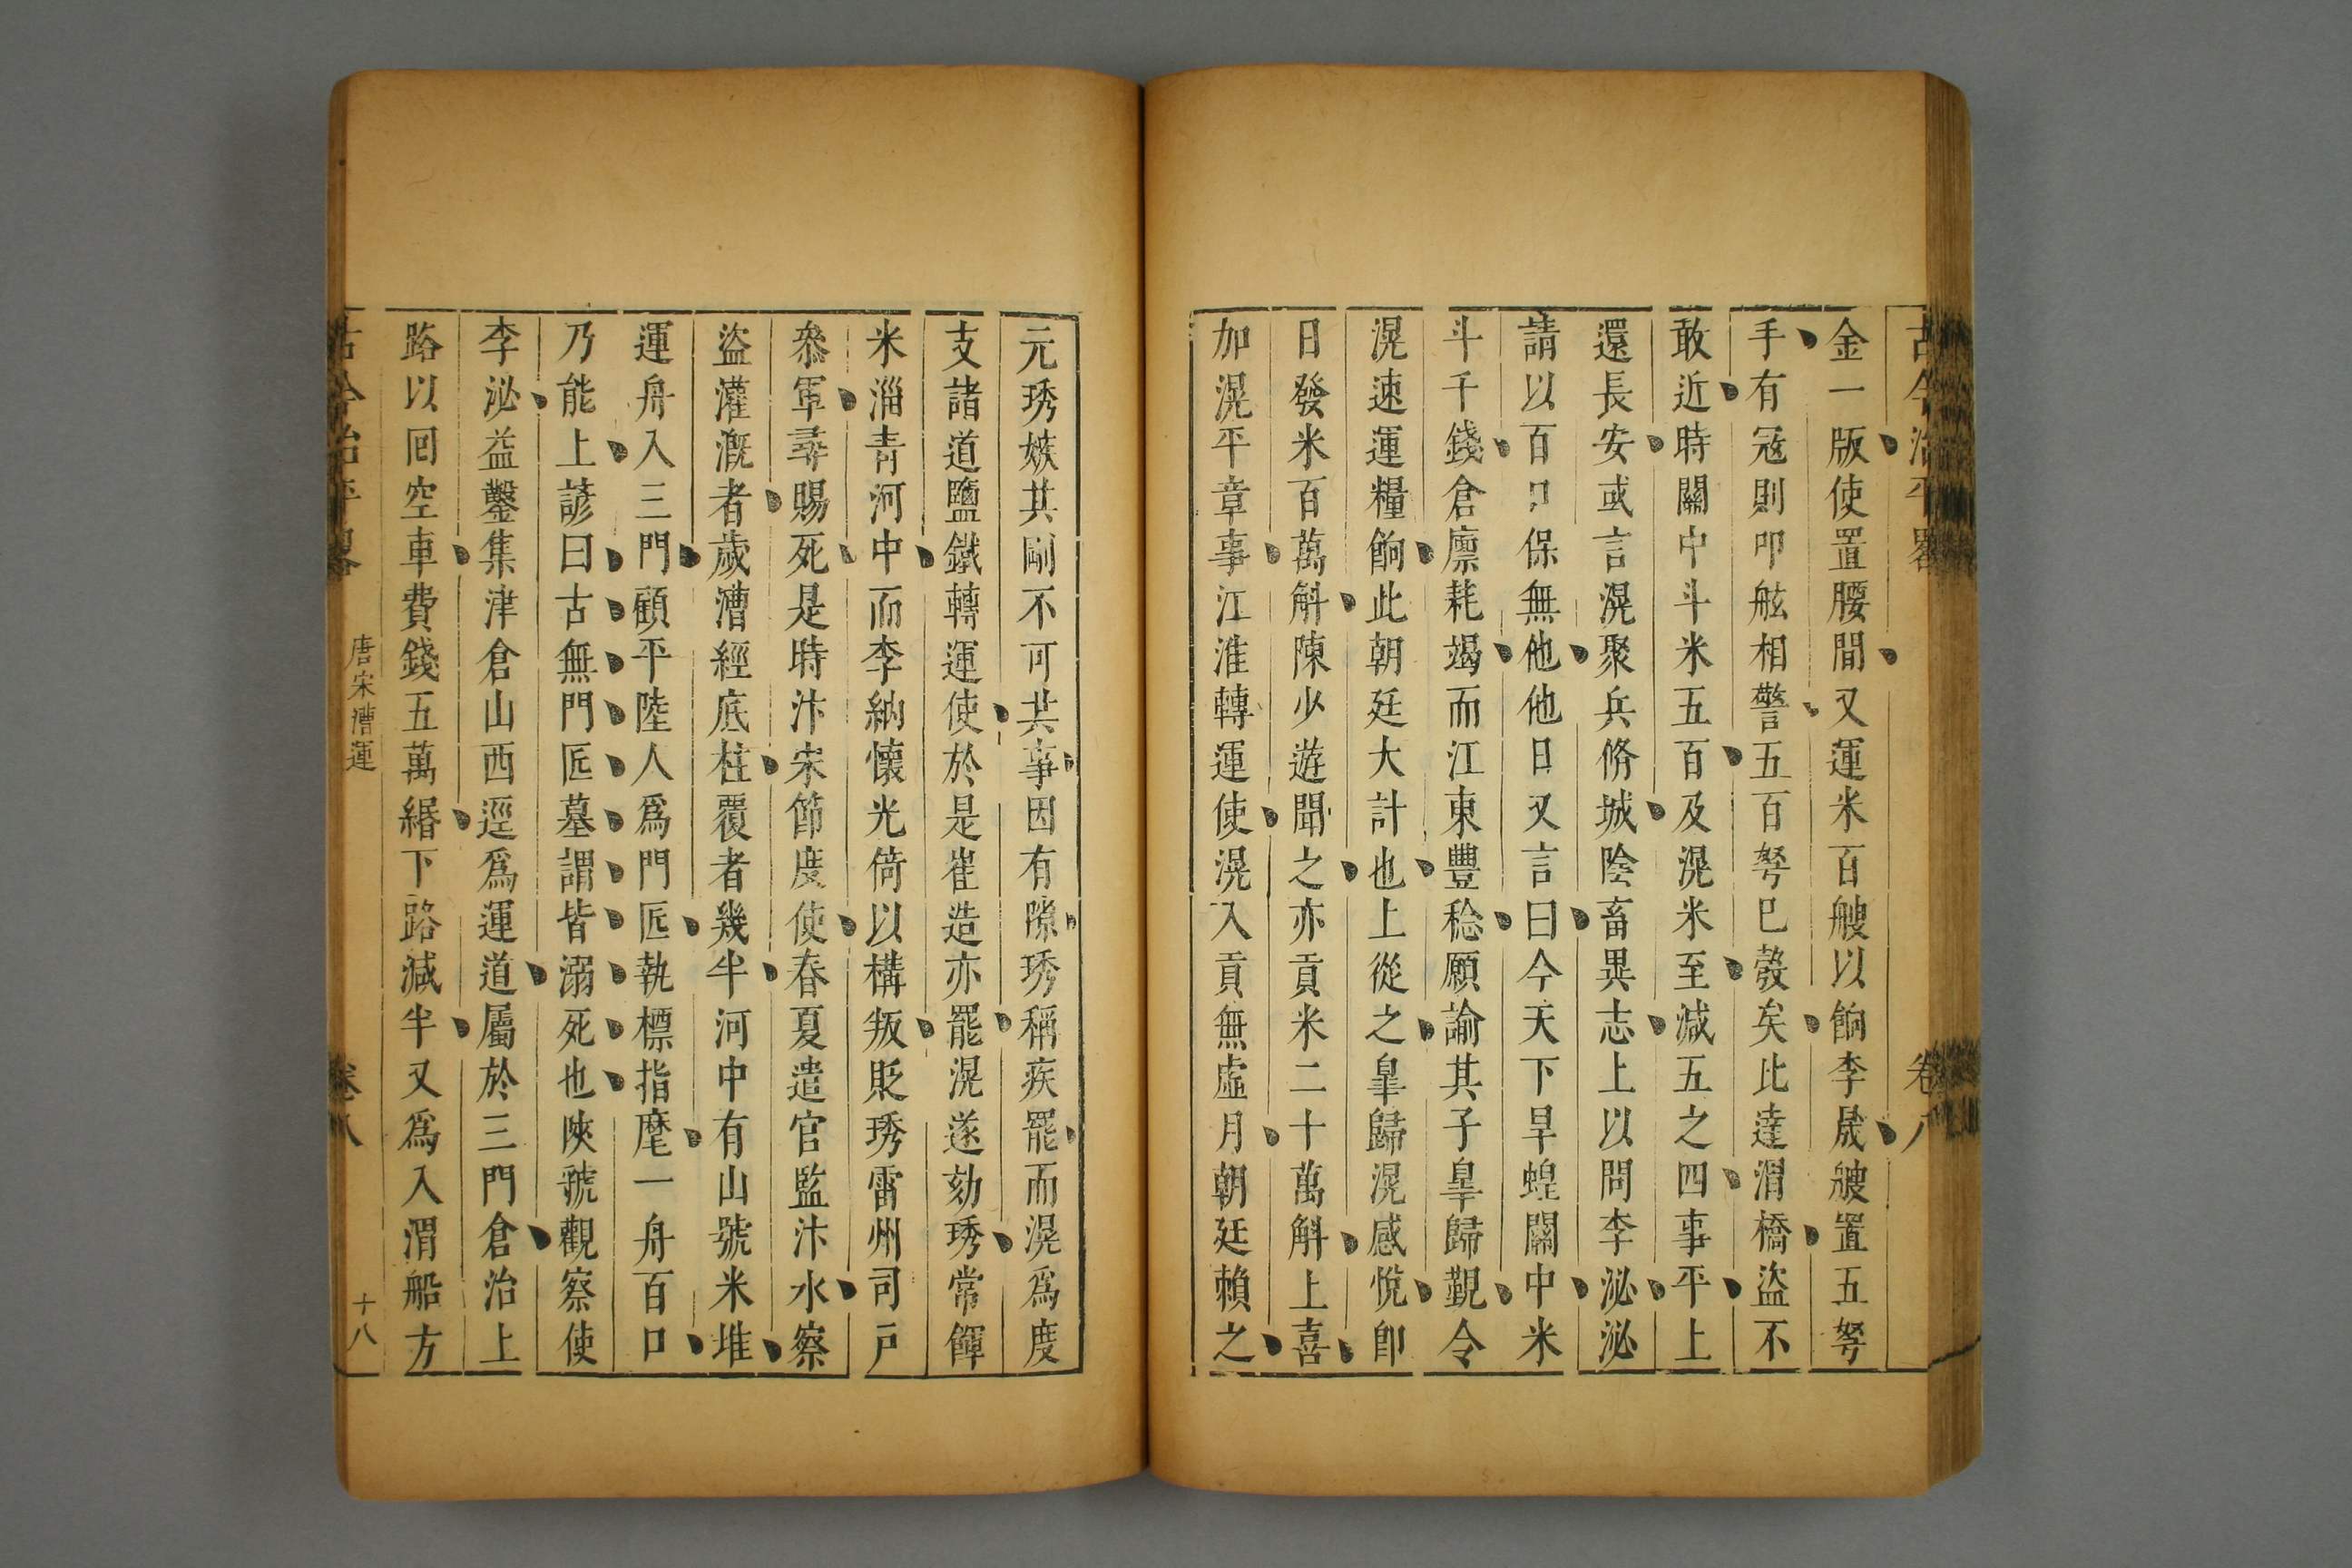 古今治平畧 卷八
金一版使置腰間又運米百艘以餉李晟艘置五弩
手有寇則叩舷相警五百弩已彀矣比達渭橋盜不
敢近時關中斗米五百及滉米至減五之四事平上
還長安或言滉聚兵脩城陰畜異志上以問李泌泌
請以百口保無他他日又言曰今天下旱蝗關中米
斗千錢倉廪耗竭而江東豐稔願諭其子臯歸覲令
滉速運糧餉此朝廷大計也上從之臯歸滉感悅卽
日發米百萬斛陳少遊聞之亦貢米二十萬斛上喜
加滉平章事江淮轉運使滉入貢無虛月朝廷賴之
元琇嫉其剛不可共事因有隙琇稱疾罷而滉爲度
支諸道鹽鐵轉運使於是崔造亦罷滉遂劾琇常餫
米淄青河中而李納懷光倚以構叛貶琇雷州司戶
叅軍尋賜死是時汴宋節度使春夏遣官監汴水察
盜灌溉者歲漕經底柱覆者幾半河中有山號米堆
運舟入三門顧平陸人爲門匠執標指麾一舟百口
乃能上諺曰古無門匠墓謂皆溺死也陜虢觀察使
李泌益鑿集津倉山西逕爲運道屬於三門倉治上
路以回空車費錢五萬緡下路減半又爲入渭船方
古今治平畧 唐宋漕運 卷八 十八